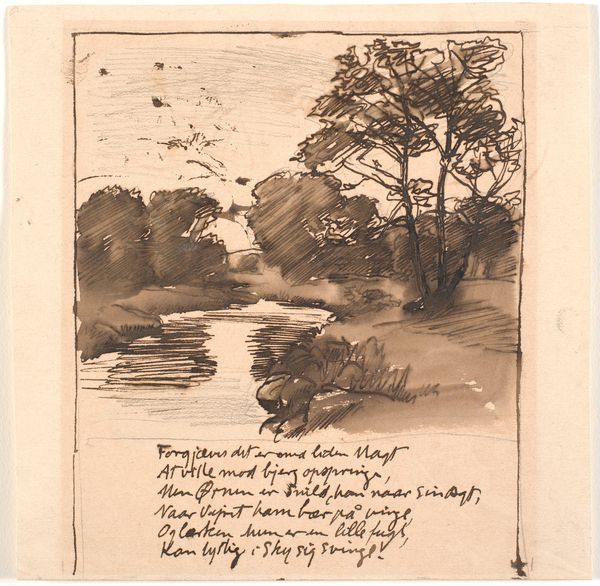 Forgjæves det er med liden Magt
At ville mod bjerg opspringe,
Men Ørnen er snild, han naar sin Agt,
Naar Vejret ham bær på vinge
Og Lærken hun er en lille fugl,
Kan lystig i Sky sig svinge!